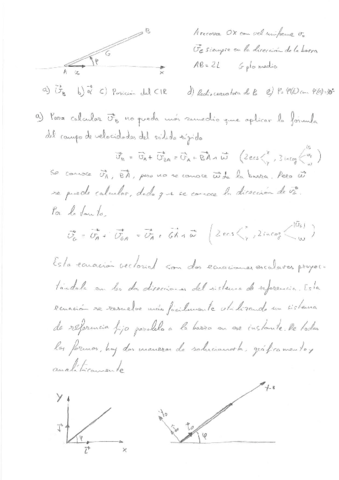 A recorre OX con vel uniforme v₀
v⃗_G siempre en la dirección de la barra
AB = 2L G pto medio
B
G
φ
A
x
a) v⃗_B b) α⃗ c) Posición del CIR d) Radio curvatura de B e)
a) Para calcular v⃗_B no queda más remedio que aplicar la fórmula
del campo de velocidades del sólido rígido
v⃗_B = v⃗_A + v⃗_BA = v⃗_A + BA ∧ ω⃗ (2 ecs
Se conoce v⃗_A, BA, pero no se conoce ω⃗ de la barra. Pero ω⃗
se puede calcular, dado q → se conoce la dirección de v⃗_G.
Por lo tanto,
v⃗_G = v⃗_A + v⃗_GA = v⃗_A + GA ∧ ω⃗ (2 ecs
Esta ecuación vectorial son dos ecuaciones escalares proyec-
tándola en las dos direcciones del sistema de referencia. Esta
ecuación se resuelve más fácilmente utilizando un sistema
de referencia fijo paralelo a la barra en ese instante. De todas
las formas, hay dos maneras de solucionarlo, gráficamente y
analíticamente
Y
j⃗
φ
i⃗
x
φ